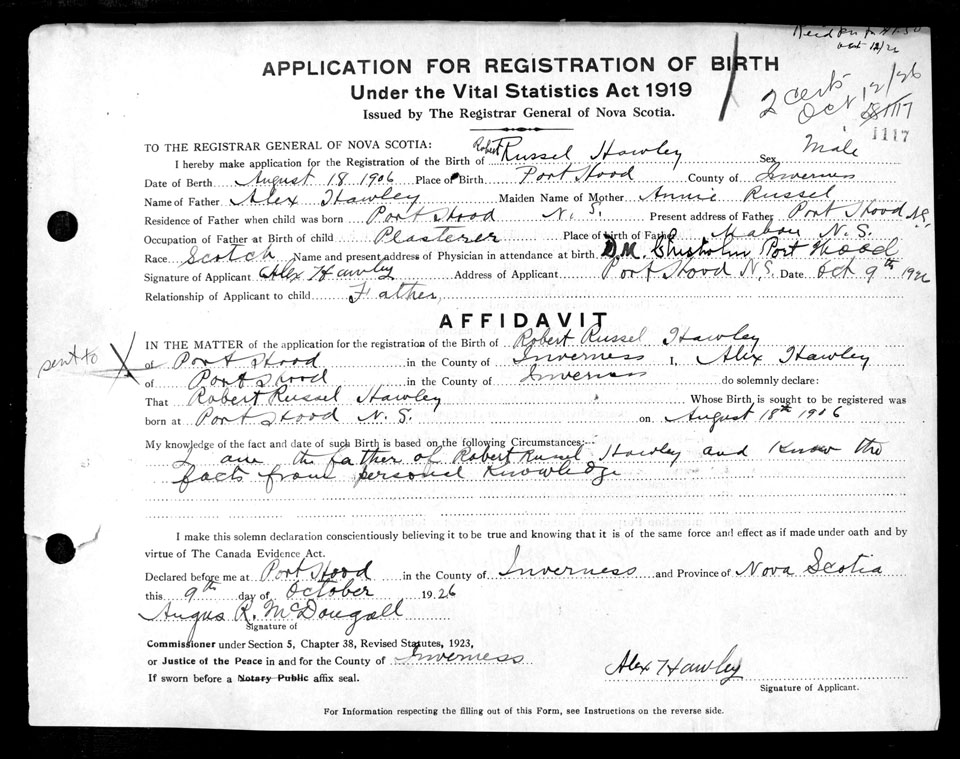 Oct 12/26
APPLICATION FOR REGISTRATION OF BIRTH
Under the Vital Statistics Act 1919
Issued by The Registrar General of Nova Scotia.
2 certs
Oct 12/26
1117
TO THE REGISTRAR GENERAL OF NOVA SCOTIA:
I hereby make application for the Registration of the Birth of Robert Russel Hawley Sex Male
Date of Birth August 18 1906 Place of Birth Port Hood County of Inverness
Name of Father Alex Hawley Maiden Name of Mother Annie Russel
Residence of Father when child was born Port Hood N. S. Present address of Father Port Hood N.S.
Occupation of Father at Birth of child Plasterer Place of birth of Father Mabou N. S.
Race Scotch Name and present address of Physician in attendance at birth D.M. Chisholm Port Hood
Signature of Applicant Alex Hawley Address of Applicant Port Hood N.S. Date Oct 9th 1926
Relationship of Applicant to child Father,
AFFIDAVIT
IN THE MATTER of the application for the registration of the Birth of Robert Russel Hawley
sent to X of Port Hood in the County of Inverness I, Alex Hawley
of Port Hood in the County of Inverness do solemnly declare:
That Robert Russel Hawley Whose Birth is sought to be registered was
born at Port Hood N. S. on August 18th 1906
My knowledge of the fact and date of such Birth is based on the following Circumstances:
I am the father of Robert Russel Hawley and Know the
facts from personal Knowledge
I make this solemn declaration conscientiously believing it to be true and knowing that it is of the same force and effect as if made under oath and by
virtue of The Canada Evidence Act.
Declared before me at Port Hood in the County of Inverness and Province of Nova Scotia
this 9th day of October 1926
Angus R. McDougall
Signature of
Commissioner under Section 5, Chapter 38, Revised Statutes, 1923,
or Justice of the Peace in and for the County of Inverness
If sworn before a Notary Public affix seal.
Alex Hawley
Signature of Applicant.
For Information respecting the filling out of this Form, see Instructions on the reverse side.